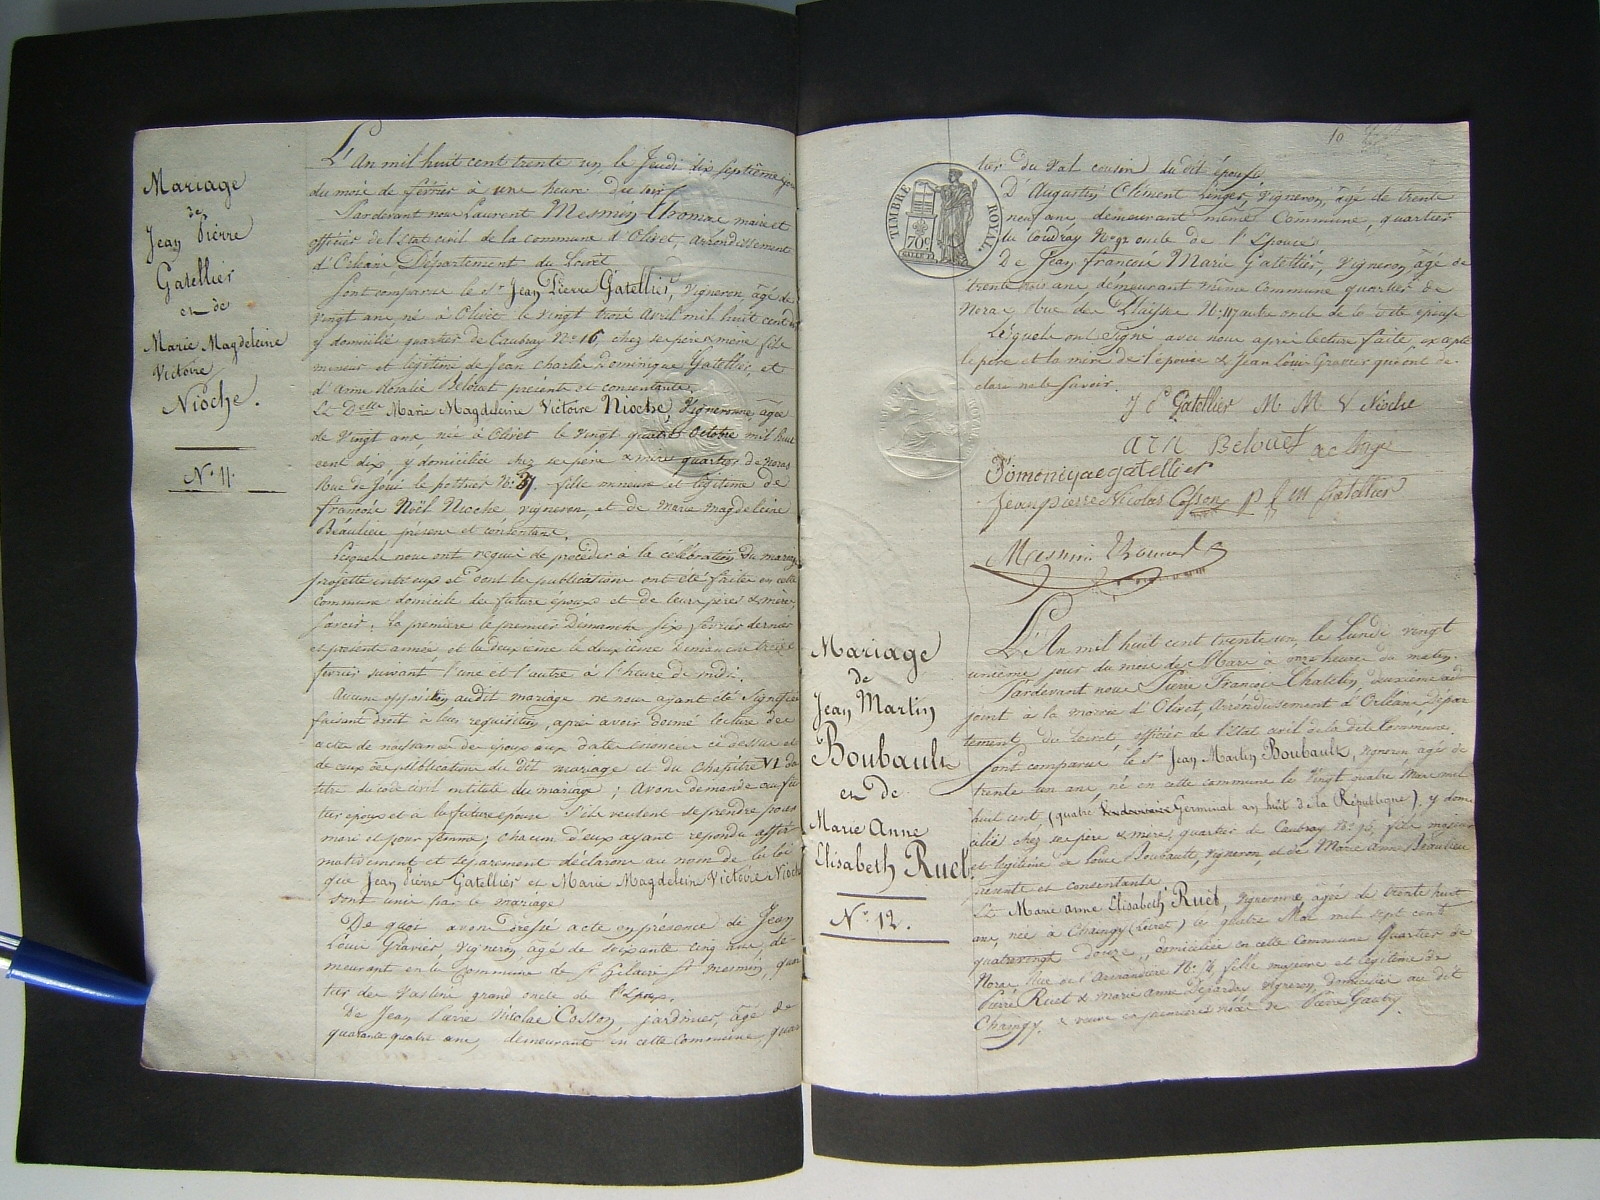 Mariage
de
Jean Pierre
Gatellier
et de
Marie Magdeleine
Victoire
Nioche.
N.° 11.
L'An mil huit cent trente un, le Jeudi dix septième jour
du mois de février à une heure du soir
Pardevant nous Laurent Mesmin Thomas maire et
officier de l'état civil de la commune d'Olivet, arrondissement
d'Orléans Département du Loiret
Sont comparus le Sr Jean Pierre Gatellier, Vigneron, âgé de
vingt ans, né à Olivet le vingt trois Avril mil huit cent dix
y domicilié quartier de Caubray No 16, chez ses père & mère fils
mineur et légitime de Jean Charles Dominique Gatellier, et
d'Anne Rosalie Belouet présents et consentants.
Et Delle Marie Magdeleine Victoire Nioche, Vigneronne âgée
de Vingt ans, née à Olivet le vingt quatre Octobre mil huit
cent dix, y domiciliée chez ses père & mère quartier de Noras
Rue de Joui le pottier No 37. fille mineure et légitime de
françois Noël Nioche vigneron, et de marie magdeleine
Beaulieu présens et consentans.
Lesquels nous ont requis de procéder à la célébration du mariage
projetté entr'eux et dont les publications ont été faites en cette
commune domicile des futurs époux et de leurs pères & mères,
Savoir: la première le premier Dimanche six février dernier
et présente année et la deuxième le deuxième Dimanche treize
février suivant l'une et l'autre à l'heure de midi.
Aucune opposition audit mariage ne nous ayant été signifiée
faisant droit à leur requisition, après avoir donné lecture des
actes de naissances des époux aux dates énoncées ci dessus et
de ceux des publications du dit mariage et du Chapitre VI du
titre du code civil intitulé du mariage; Avons demandé au fu-
tur époux et à la future épouse s'ils veulent se prendre pour
mari et pour femme; chacun d'eux ayant répondu affir-
mativement et séparément déclarons au nom de la loi
que Jean Pierre Gatellier et Marie Magdelein Victoire Nioche
sont unis par le mariage
De quoi avons dressé acte en présence de Jean
Louis Gravier, Vigneron, âgé de soixante cinq ans, de-
meurant en la Commune de St hilaire St mesmin, quar
tier des grand oncle de l'Epoux.
De Jean Pierre Nicolas Cosson, jardinier, âgé de
quarante quatre ans, demeurant en cette Commune, quar
10
TIMBRE ROYAL
70c
tier du Val cousin du dit époux
D'Augustin Clément Linger, Vigneron, âgé de trente
neuf ans, demeurant même Commune, quartier
du Coudray No 92 oncle de l'Epouse
De Jean françois Marie Gatellier, Vigneron, âgé de
trente trois ans, demeurant même Commune quartier de
Noras Rue de No 117 autre oncle de la dite épouse
Lesquels ont signé avec nous après lecture faite, excepté
le père et la mère de l'épouse & Jean Louis Gravier qui ont dé-
claré ne le Savoir.
J P Gatellier M M V Nioche
A R N Belouet
Domeniquegatellier
Jean pierre Nicolas Cosson J f m Gatellier
Mesmin Thomas
Mariage
de
Jean Martin
Boubault
et de
Marie Anne
Elisabeth Ruet.
N.° 12.
L'An mil huit cent trente un, le Lundi vingt
unième jour du mois de Mars à onze heures du matin.
Pardevant nous Pierre François Chatelin, deuxième ad
joint à la mairie d'Olivet, Arrondissement d'Orléans, Dépar
tement du Loiret, officier de l'état civil de la dite Commune.
Sont comparus le Sr Jean Martin Boubault, vigneron, âgé de
trente un ans, né en cette commune le Vingt quatre Mars mil
huit cent, (quatre Germinal an huit de la République), y domi
cilié chez ses père & mère, quartier de Caubray No 15, fils majeur
et légitime de Louis Boubault, Vigneron, et de Marie Anne Beaulieu
présents et consentants.
Et Marie Anne Elisabeth Ruet, Vigneronne âgée de trente huit
ans, née à Chaingy (Loiret) le quatre Mai mil sept cent
quatrevingt douze, domiciliée en cette Commune Quartier de
Noras, Rue de l'Armandière No fille majeure et légitime de
Pierre Ruet & marie Anne Dejardes Vigneron, domiciliés au dit
Chaingy. & veuve en premières noces de Pierre Gautry.